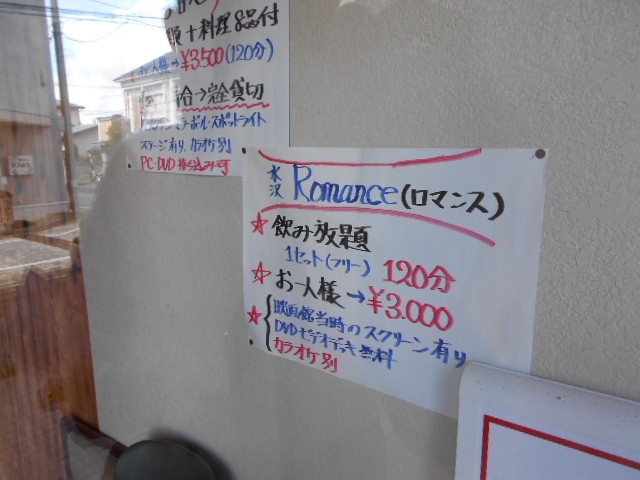 題+料理8品付
お一人様→¥3.500(120分)
合→完全貸切
ミラーボール・スポットライト
ステージ有り、カラオケ別
PC・DVD持ち込み可
水沢 Romance(ロマンス)
☆飲み放題
1セット(フリー) 120分
☆お一人様→¥3.000
☆映画館当時のスクリーン有り
DVDビデオデッキ無料
カラオケ別